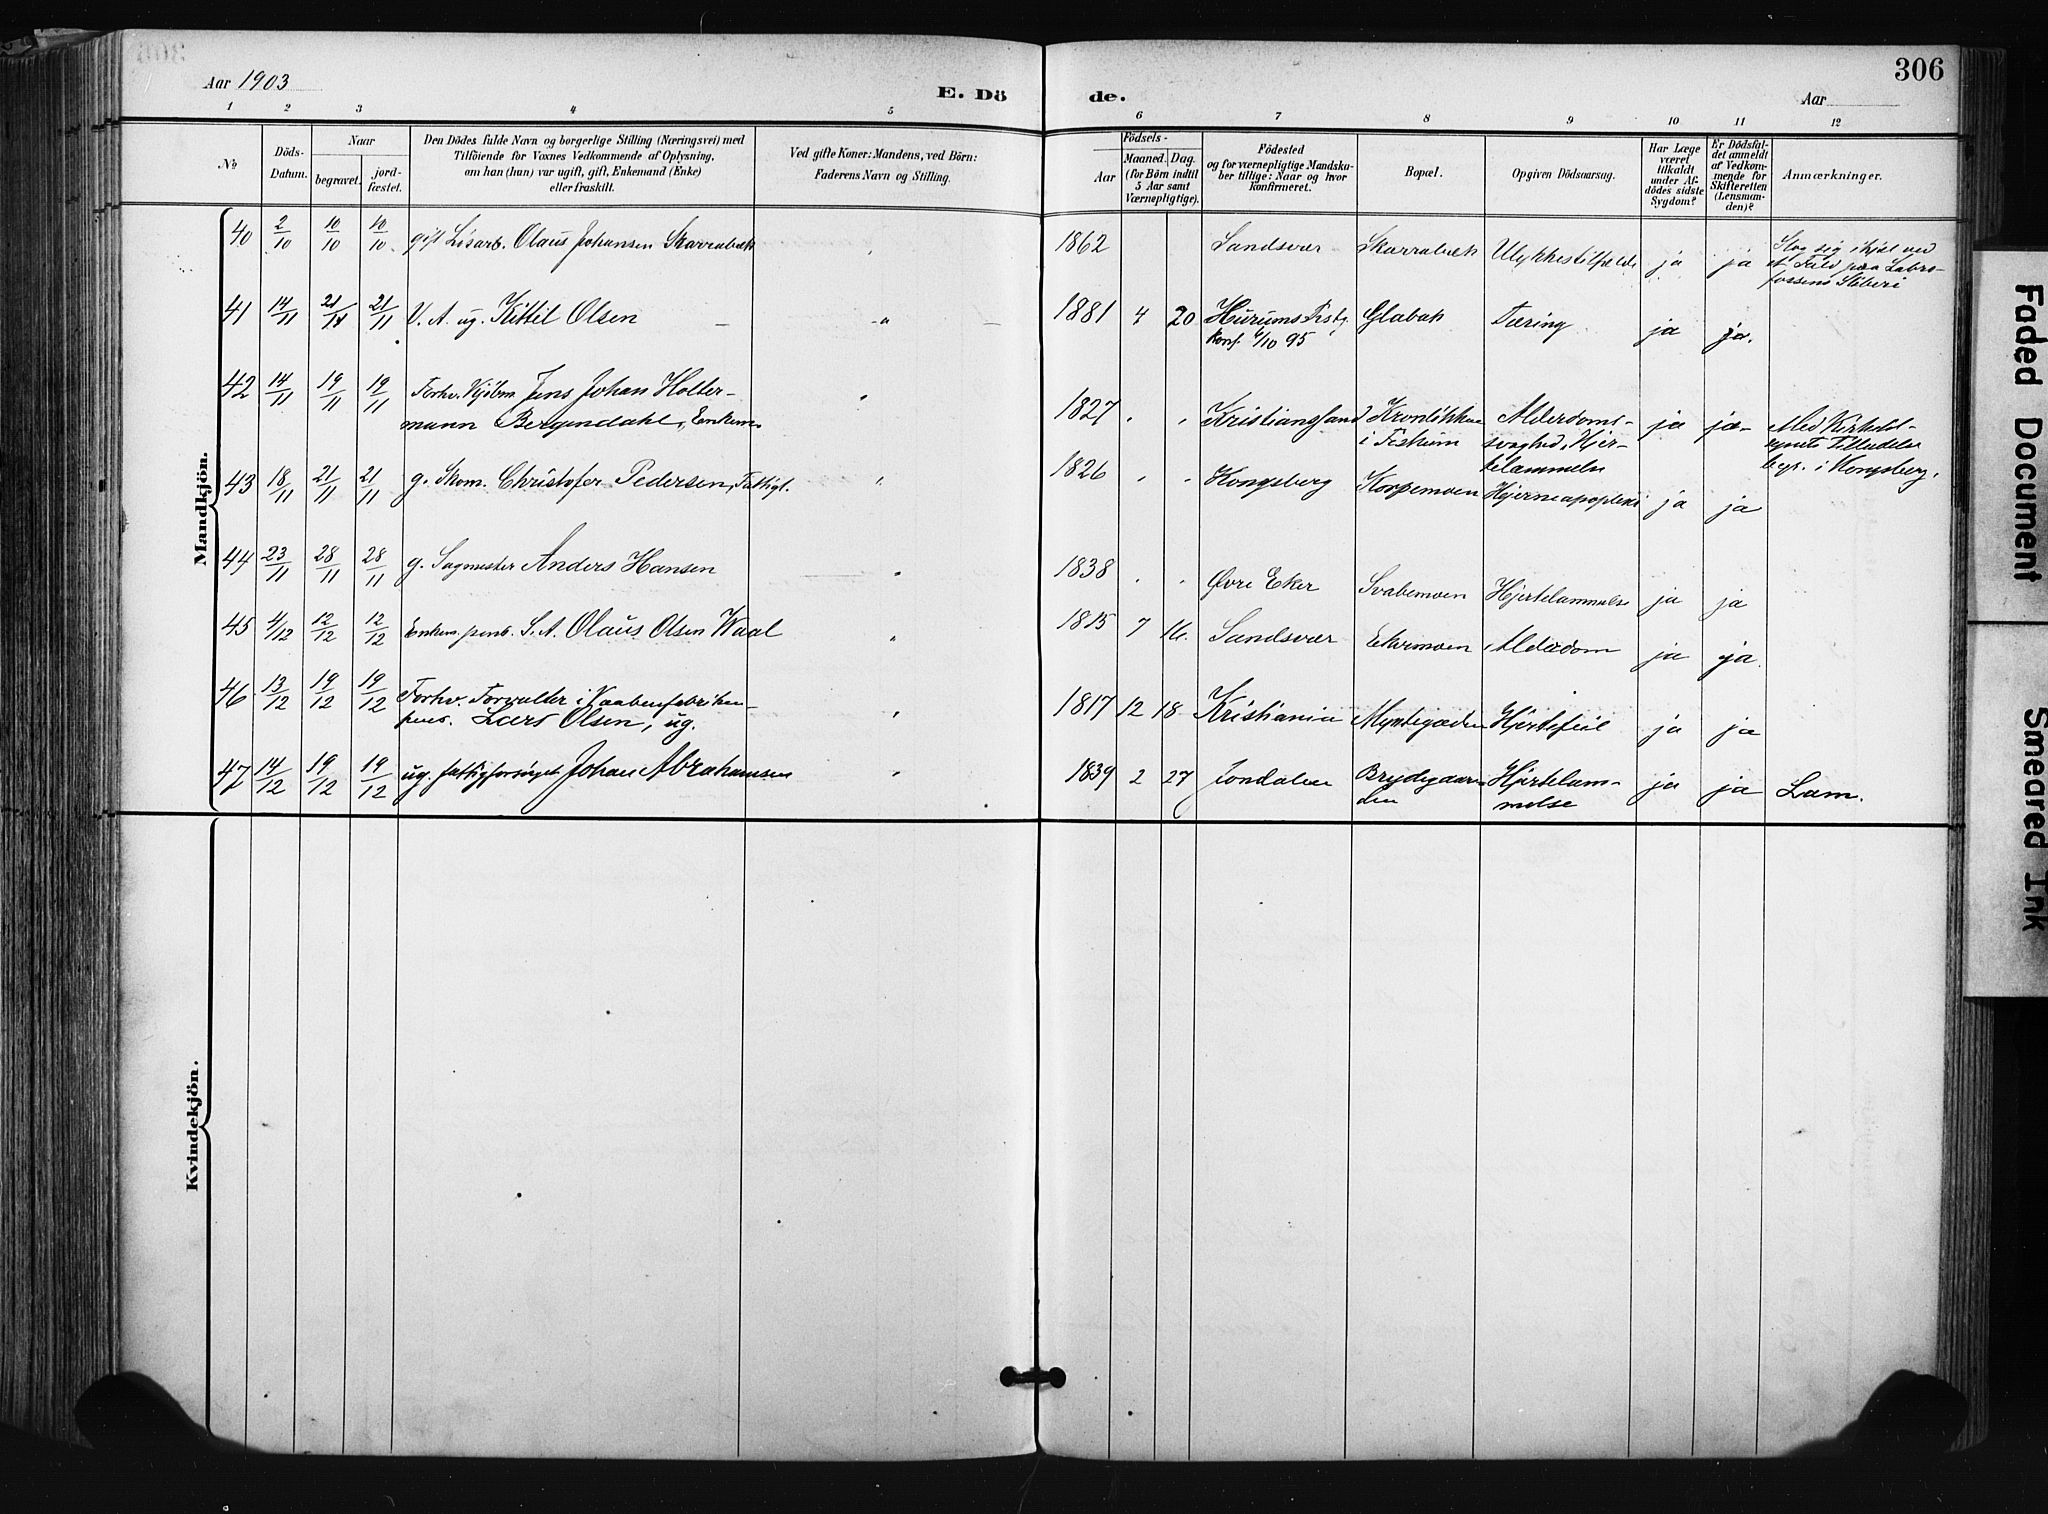 306
Aar 1903
E. Dö de.
Aar
1 2 3 4 5 6 7 8 9 10 11 12
No
Döds-Datum.
Naar
begravet.
jord-fæstet.
Den Dödes fulde Navn og borgerlige Stilling (Næringsvei) med
Tilföiende for Voxnes Vedkommende af Oplysning,
om han (hun) var ugift, gift, Enkemand (Enke)
eller fraskilt.
Ved gifte Koner: Mandens, ved Börn:
Faderens Navn og Stilling.
Födsels-
Aar
Maaned. Dag.
(for Börn indtil
5 Aar samt
Værnepligtige).
Födested
og for værnepligtige Mandska-
ber tillige: Naar og hvor
konfirmeret.
Bopæl.
Opgiven Dödsaarsag.
Har Læge
været
tilkaldt
under Af-
dödes sidste
Sygdom?
Er Dödsfal-
det anmeldt
af Vedkom-
mende for
Skifteretten
(Lensman-
den)?
Anmærkninger.
Mandkjön.
40 2/10 10/10 10/10 gift Lösarb. Olaus Johansen Skarrabæk " 1862 Sandsvær Skarrabæk Ulykkestilfælde ja ja Slog sig ihjel ved
et Fald paa Labro-
fossens Sliberi
41 14/11 21/11 21/11 V. A. ug. Kittil Olsen — " — 1881 4 20 Hurums Prstg. Glabak Tæring ja ja.
konf. 6/10 95
42 14/11 19/11 19/11 Forhv. Kjöbm. Jens Johan Holter-
mann Bergendahl, Enkem. " 1827 " " Kristianssand Kronlökken
i Fiskum Alderdoms-
svaghed, Hjer-
telammelse ja ja Med Kirkedt-
egnets Tilladelse
begr. i Kongsberg.
43 18/11 21/11 21/11 g. Skom. Christofer Pedersen, Fattigl. " 1826 " " Kongsberg Korpemoen Hjerneapoplexi ja ja
44 23/11 28/11 28/11 g. Sagmester Anders Hansen " 1838 " " Øvre Eker Svabemoen Hjertelammelse ja ja
45 4/12 12/12 12/12 Enkem. pens. S. A. Olaus Olsen Waal " 1815 7 16. Sandsvær Ekermoen Alderdom ja ja.
46 13/12 19/12 19/12 Forhv. Forvalter i Vaabenfabriken
pens. Lars Olsen, ug. " 1817 12 18 Kristiania Myntgaden Hjertefeil ja ja
47 14/12 19/12 19/12 ug. fattigforsörget Johan Abrahamsen " 1839 2 27 Jondalen Brydegaar-
den Hjertelam-
melse ja ja Lam.
Kvindekjön.
Faded Document
Smeared Ink